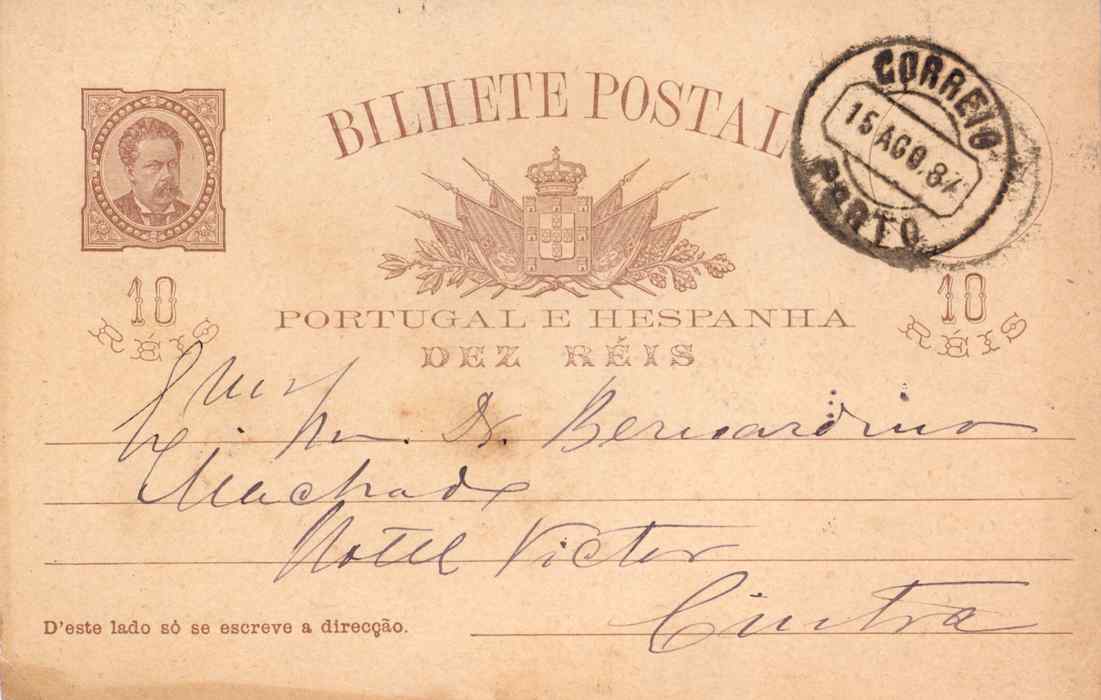 BILHETE POSTAL
CORREIO
15 AGO. 84
PORTO
10
RÉIS
10
RÉIS
PORTUGAL E HESPANHA
DEZ RÉIS
Dr. Bernardino
Machado
Hotel Victor
Cintra
D'este lado só se escreve a direcção.